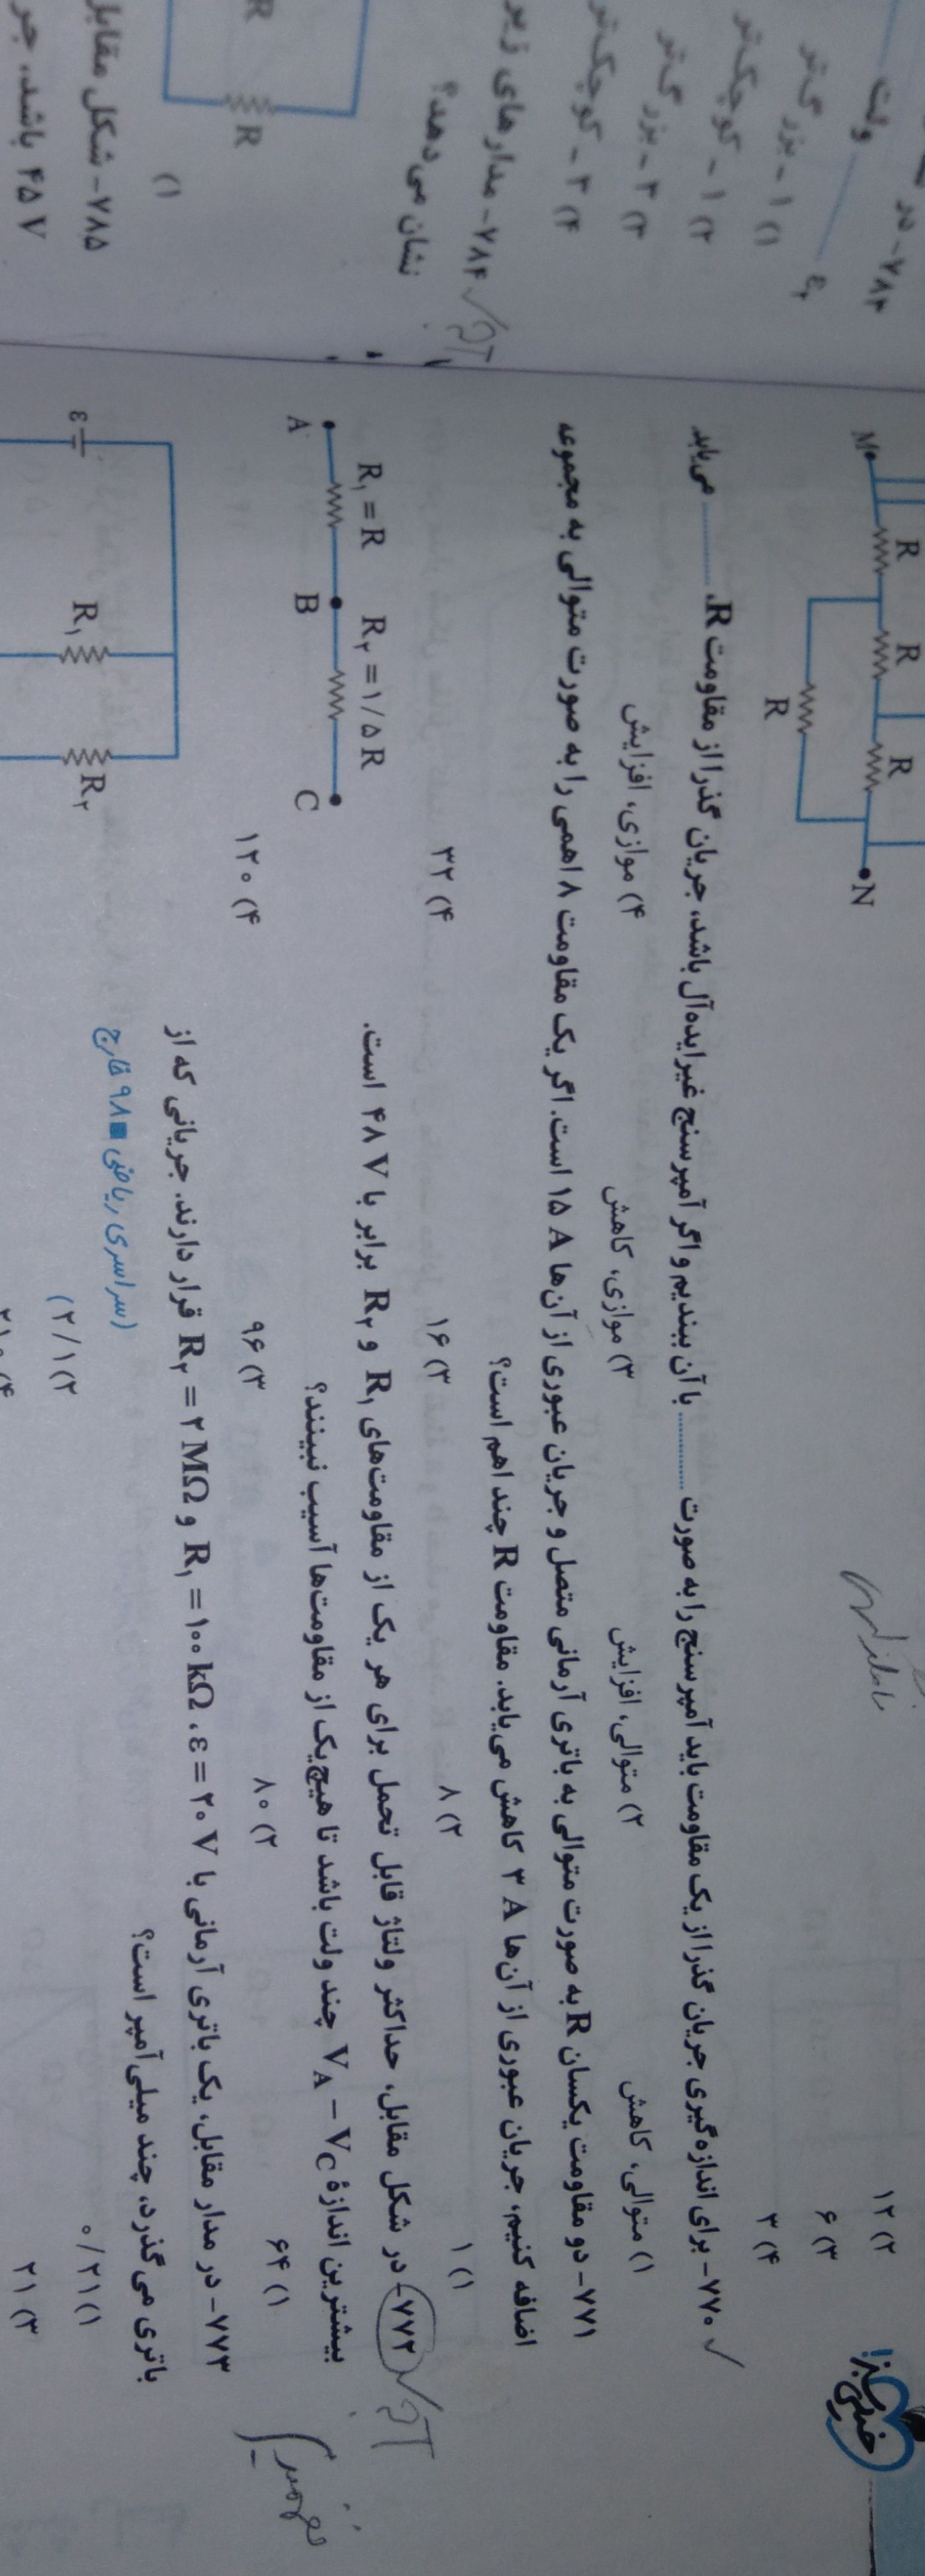 خیلی سبز!
۱۲ (۲
۶ (۳
۳ (۴
M
R
R
R
R
N
۷۷۰- برای اندازه‌گیری جریان گذرا از یک مقاومت باید آمپرسنج را به صورت ............ با آن ببندیم و اگر آمپرسنج غیرایده‌آل باشد، جریان گذرا از مقاومت R، ............ می‌یابد.
۱) متوالی، کاهش
۲) متوالی، افزایش
۳) موازی، کاهش
۴) موازی، افزایش
۷۷۱- دو مقاومت یکسان R به صورت متوالی به باتری آرمانی متصل و جریان عبوری از آن‌ها ۱۵ A است. اگر یک مقاومت ۸ اهمی را به صورت متوالی به مجموعه
اضافه کنیم، جریان عبوری از آن‌ها ۳ A کاهش می‌یابد. مقاومت R چند اهم است؟
۱) ۱
۲) ۸
۳) ۱۶
۴) ۳۲
۷۷۲- در شکل مقابل، حداکثر ولتاژ قابل تحمل برای هر یک از مقاومت‌های R۱ و R۲ برابر با ۴۸ V است.
بیشترین اندازهٔ VA – VC چند ولت باشد تا هیچ‌یک از مقاومت‌ها آسیب نبینند؟
R۱ = R
R۲ = ۱/۵ R
A
B
C
۱) ۶۴
۲) ۸۰
۳) ۹۶
۴) ۱۲۰
۷۷۳- در مدار مقابل، یک باتری آرمانی با ε = ۲۰ V، R۱ = ۱۰۰ kΩ و R۲ = ۲ MΩ قرار دارند. جریانی که از
باتری می‌گذرد، چند میلی‌آمپر است؟
(سراسری ریاضی ۹۸ خارج)
۱) ۰/۲۱
۲) ۲/۱
۳) ۲۱
۴) ۲۱۰
ε
R۱
R۲
۷۸۳- در
ولت
ε۲
۱) ۱ - بزرگ‌تر
۲) ۱ - کوچک‌تر
۳) ۳ - بزرگ‌تر
۴) ۳ - کوچک‌تر
۷۸۴- مدارهای زیر
نشان می‌دهد؟
R
R
۱)
۷۸۵- شکل مقابل
۴۵ V باشد، جر